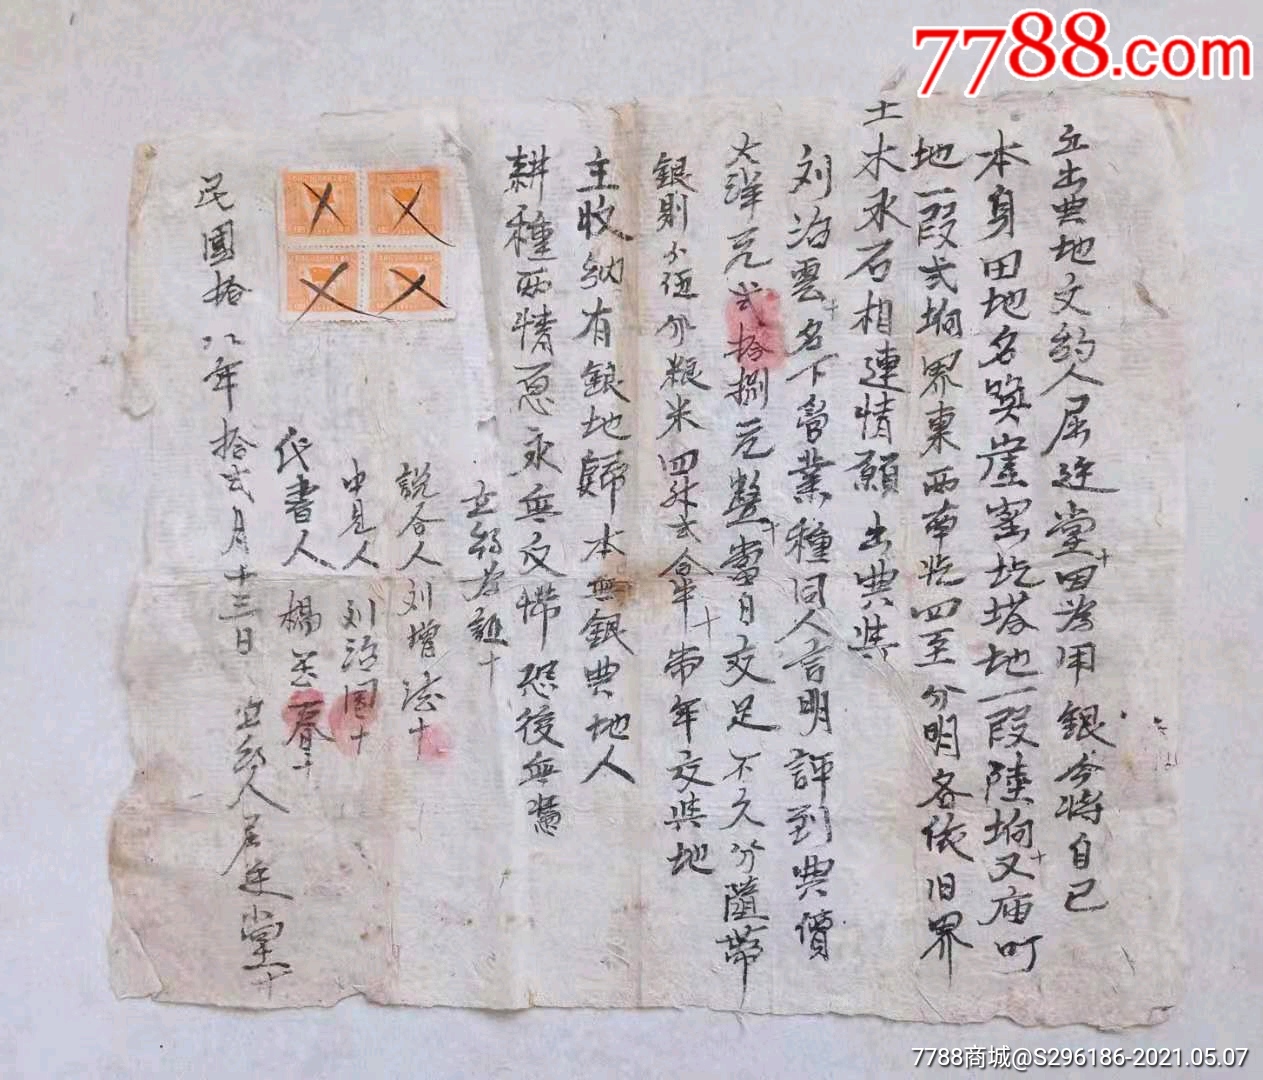 7788.com
立出典地文約人屈廷堂因為用銀今將自己
本身田地名喚崖窰圪塔地一段陸垧又庙町
地一段弍垧界東西南北四至分明各依旧界
土木永石相連情願出典與
刘治雲名下營業種同人言明評到典價
大洋元弍拾捌元整當日交足不欠分隨帶
銀則分伍分粮米四升弍合半常年交與地
主收納有銀地歸本無銀典地人
耕種兩情愿永無反悔恐後無憑
立約為証
說合人刘增法
中見人 刘治国
代書人 楊春
民國拾八年拾弍月十三日 立約人屈廷堂
7788商城@S296186-2021.05.07